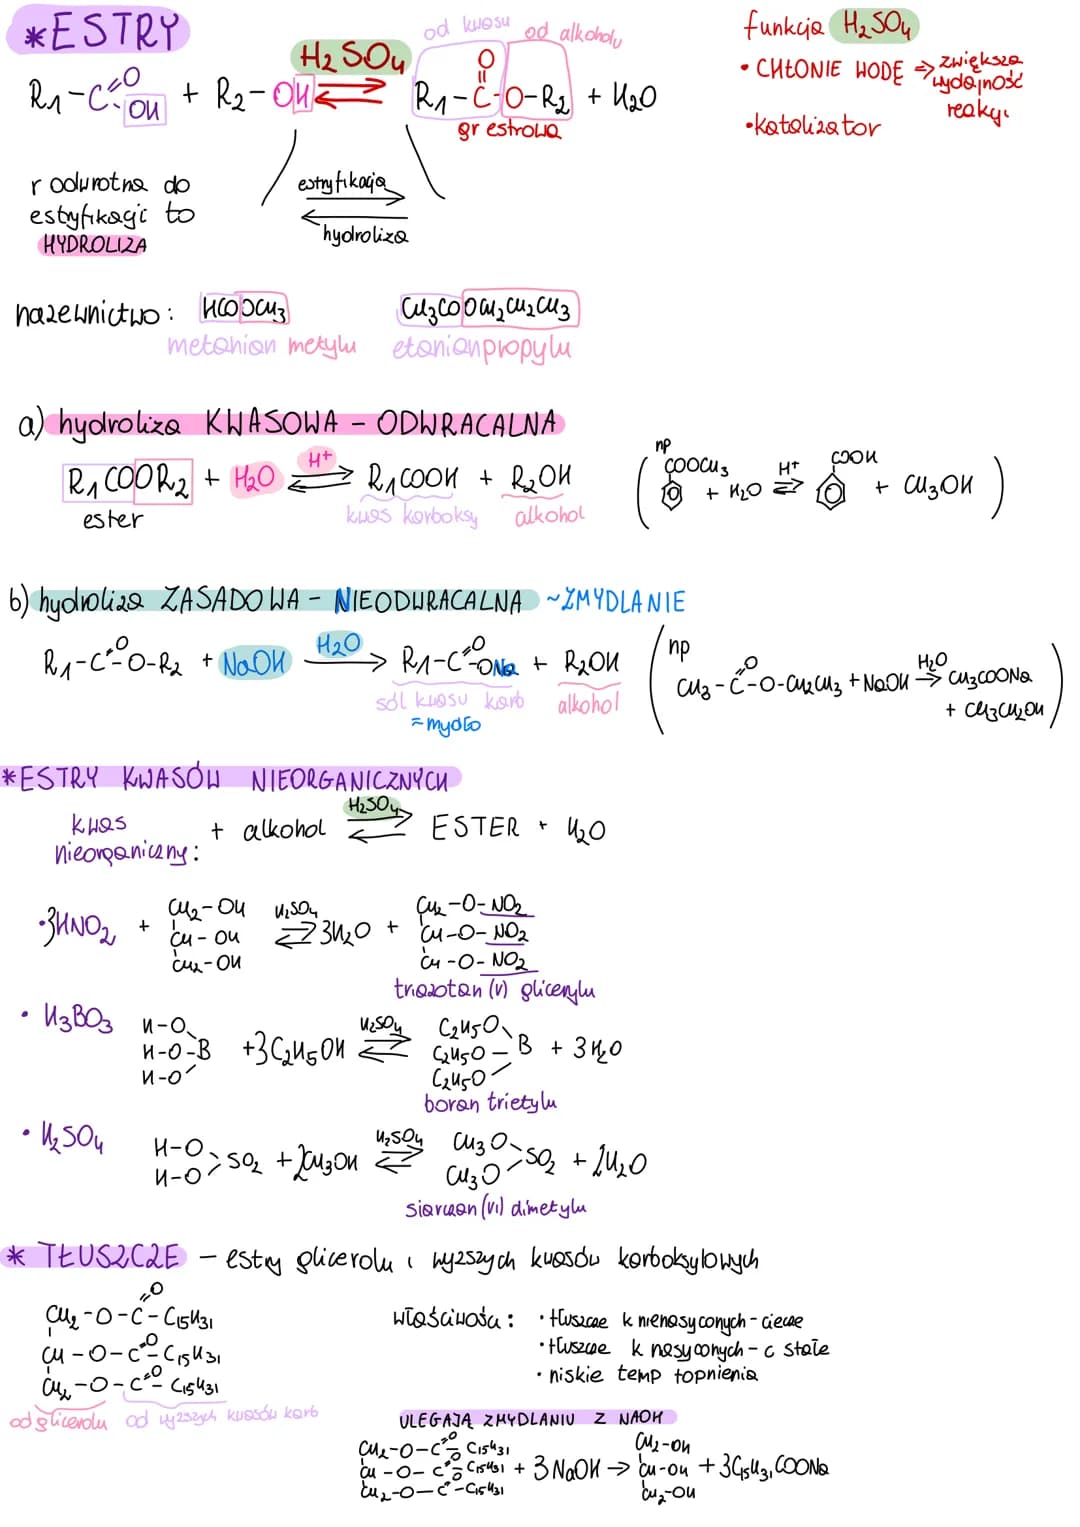 *ESTRY
od kwasu od alkoholu
funkcja H₂SO₄
• CHŁONIE WODĘ ⇒ zwiększa wydajność reakcji
• katalizator
R₁-C=O OH + R₂-OH ⇄ H₂SO₄ R₁-C(=O)-O-R₂ + H₂O
gr estrowa
r odwrotna do
estyfikacji to
HYDROLIZA
estryfikacja
hydroliza
nazewnictwo: HCOOCH₃ CH₃COOCH₂CH₂CH₃
metanian metylu etanian propylu
a) hydroliza KWASOWA - ODWRACALNA
R₁COOR₂ + H₂O ⇄ H⁺ R₁COOH + R₂OH
ester kwas karboksy alkohol
(np COOCH₃ + H₂O ⇄ H⁺ COOH + CH₃OH)
b) hydroliza ZASADOWA - NIEODWRACALNA ~ZMYDLANIE
R₁-C=O-O-R₂ + NaOH → H₂O R₁-C=O-ONa + R₂OH
sól kwasu karb alkohol
= mydło
(np CH₃-C=O-O-CH₂CH₃ + NaOH → H₂O CH₃COONa + CH₃CH₂OH)
*ESTRY KWASÓW NIEORGANICZNYCH
kwas nieorganiczny: + alkohol ⇄ H₂SO₄ ESTER + H₂O
• 3HNO₂ + CH₂-OH CH-OH CH₂-OH ⇄ H₂SO₄ 3H₂O + CH₂-O-NO₂ CH-O-NO₂ CH-O-NO₂
triazotan (V) glicerylu
• H₃BO₃ H-O H-O-B H-O + 3C₂H₅OH ⇄ H₂SO₄ C₂H₅O C₂H₅O-B C₂H₅O + 3H₂O
boran trietylu
• H₂SO₄ H-O H-O SO₂ + 2CH₃OH ⇄ H₂SO₄ CH₃O CH₃O SO₂ + 2H₂O
siarczan (VI) dimetylu
* TŁUSZCZE - estry glicerolu i wyższych kwasów karboksylowych
CH₂-O-C=O-C₁₅H₃₁
CH-O-C=O-C₁₅H₃₁
CH₂-O-C=O-C₁₅H₃₁
od glicerolu od wyższych kwasów karb
właściwości: • tłuszcze k nienasyconych - ciecze
• tłuszcze k nasyconych - c stałe
• niskie temp topnienia
ULEGAJĄ ZMYDLANIU Z NAOH
CH₂-O-C=O-C₁₅H₃₁ CH-O-C=O-C₁₅H₃₁ CH₂-O-C=O-C₁₅H₃₁ + 3NaOH → CH₂-OH CH-OH CH₂-OH + 3C₁₅H₃₁COONa